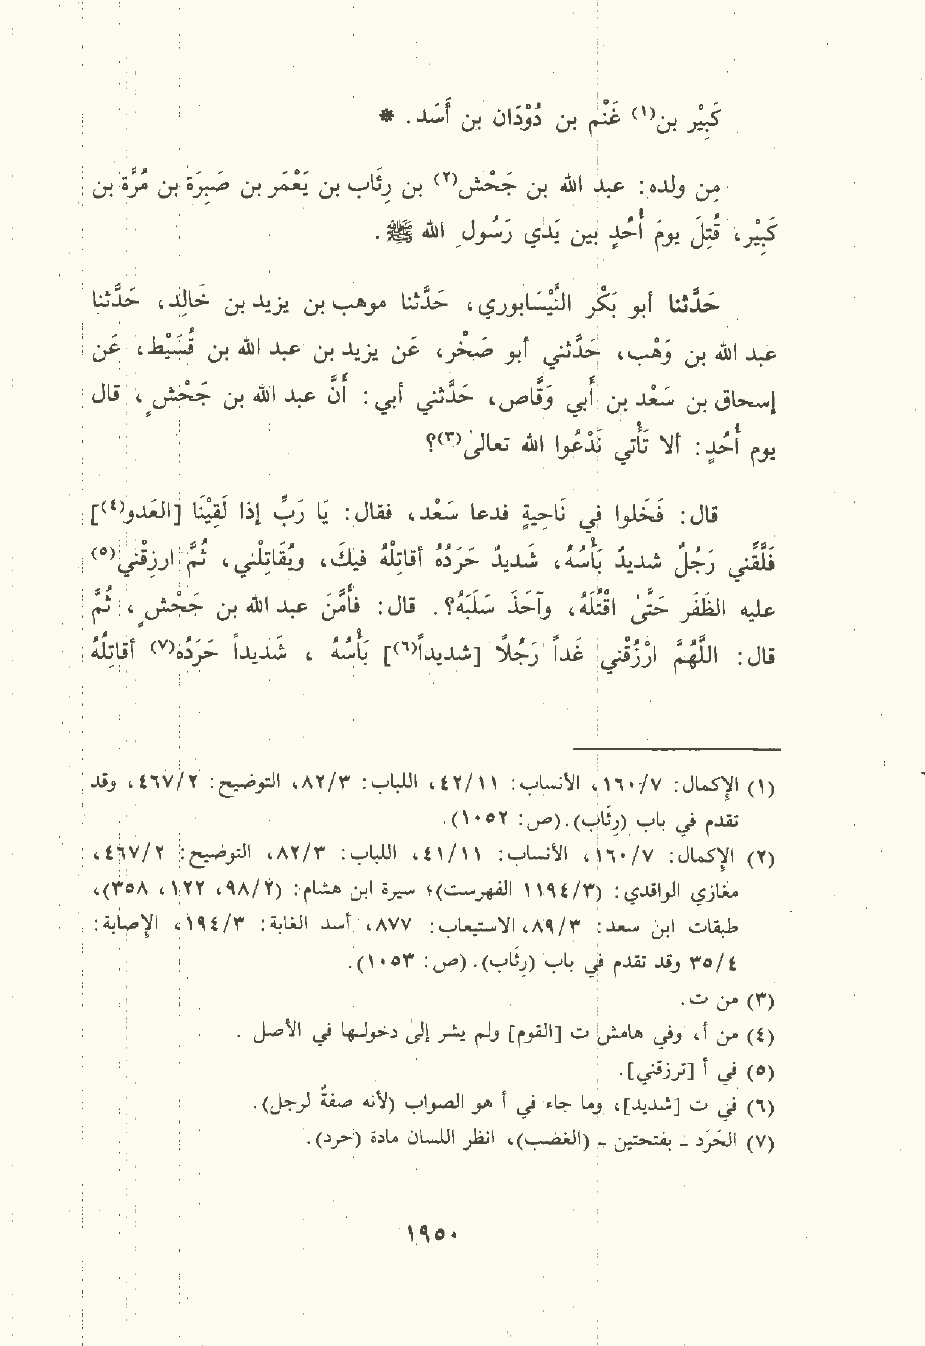 كَبِيْر بن(١) غَنْم بن دُوْدَان بن أَسَد. *
مِن ولده: عبد الله بن جَحْش(٢) بن رِئَاب بن يَعْمَر بن صَبِرَة بن مُرَّة بن
كَبِيْر، قُتِلَ يومَ أُحُدٍ بين يَدي رَسُولِ الله ﷺ.
حَدَّثنا أبو بَكْر النَّيْسَابوري، حَدَّثنا موهب بن يزيد بن خَالِد، حَدَّثنا
عبد الله بن وَهْب، حَدَّثني أبو صَخْر، عَن يزيد بن عبد الله بن قُسَيْط، عَن
إسحاق بن سَعْد بن أَبي وَقَّاص، حَدَّثني أبي: أَنَّ عبد الله بن جَحْشٍ، قال
يوم أُحُدٍ: ألا تَأْتي نَدْعُوا الله تعالىٰ(٣)؟
قال: فَخَلوا في نَاحِيةٍ فدعا سَعْد، فقال: يَا رَبِّ إذا لَقِيْنَا [العَدو(٤)]
فَلَقِّني رَجُلٌ شديدٌ بَأْسُهُ، شَديدٌ حَرَدُهُ أقاتِلْهُ فيكَ، ويُقَاتِلْني، ثُمَّ ارزقْني(٥)
عليه الظَفَر حَتَّىٰ اقْتُلَهُ، وآخذَ سَلَبَهُ؟. قال: فأَمَّنَ عبد الله بن جَحْشٍ، ثُمَّ
قال: اللَّهُمَّ ارْزُقْني غَداً رَجُلاً [شديداً(٦)] بَأْسُهُ، شَديداً حَرَدُه(٧) أقاتِلُهُ
(١) الإكمال: ١٦٠/٧، الأنساب: ٤٢/١١، اللباب: ٨٢/٣، التوضيح: ٤٦٧/٢، وقد
تقدم في باب (رِئَاب).(ص: ١٠٥٢).
(٢) الإكمال: ١٦٠/٧، الأنساب: ٤١/١١، اللباب: ٨٢/٣، التوضيح: ٤٦٧/٢،
مغازي الواقدي: (١١٩٤/٣ الفهرست)؛ سيرة ابن هشام: (٩٨/٢، ١٢٢، ٣٥٨)،
طبقات ابن سعد: ٨٩/٣، الاستيعاب: ٨٧٧، أسد الغابة: ١٩٤/٣، الإصابة:
٣٥/٤ وقد تقدم في باب (رِئَاب). (ص: ١٠٥٣).
(٣) من ت.
(٤) من أ، وفي هامش ت [القوم] ولم يشر إلىٰ دخولها في الأصل.
(٥) في أ [ترزقني].
(٦) في ت [شديد]، وما جاء في أ هو الصواب (لأنه صفةٌ لرجل).
(٧) الحَرَد - بفتحتين - (الغضب)، انظر اللسان مادة (حرد).
١٩٥٠